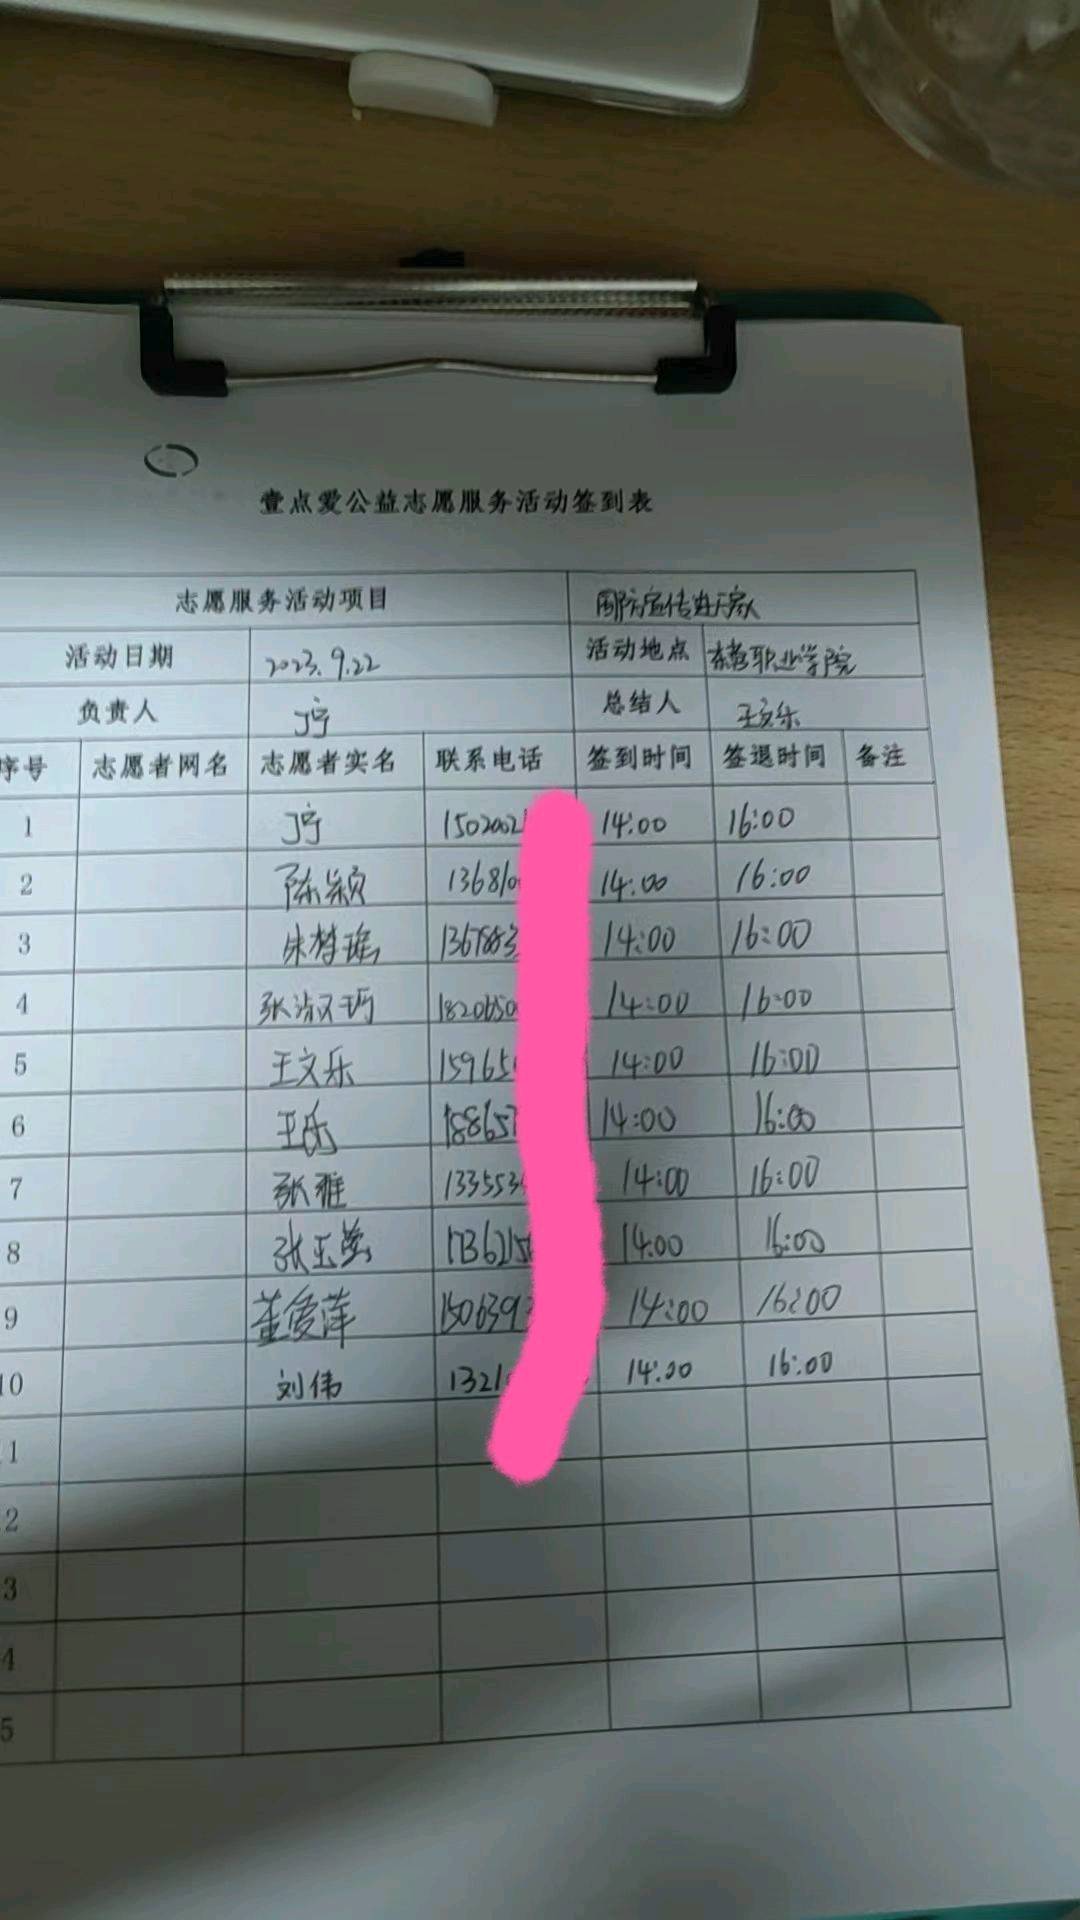 壹点爱公益志愿服务活动签到表
志愿服务活动项目 国防宣传进万家
活动日期 2023.9.22 活动地点 东营职业学院
负责人 丁宁 总结人 王文乐
序号 志愿者网名 志愿者实名 联系电话 签到时间 签退时间 备注
1 丁宁 1502002 14:00 16:00
2 陈颖 13681 14:00 16:00
3 朱梦瑶 1367883 14:00 16:00
4 张淑巧 1820650 14:00 16:00
5 王文乐 15965 14:00 16:00
6 188657 14:00 16:00
7 张雅 133553 14:00 16:00
8 张玉莹 1736215 14:00 16:00
9 董爱萍 1506393 14:00 16:00
10 刘伟 1321 14:00 16:00
1
2
3
4
5